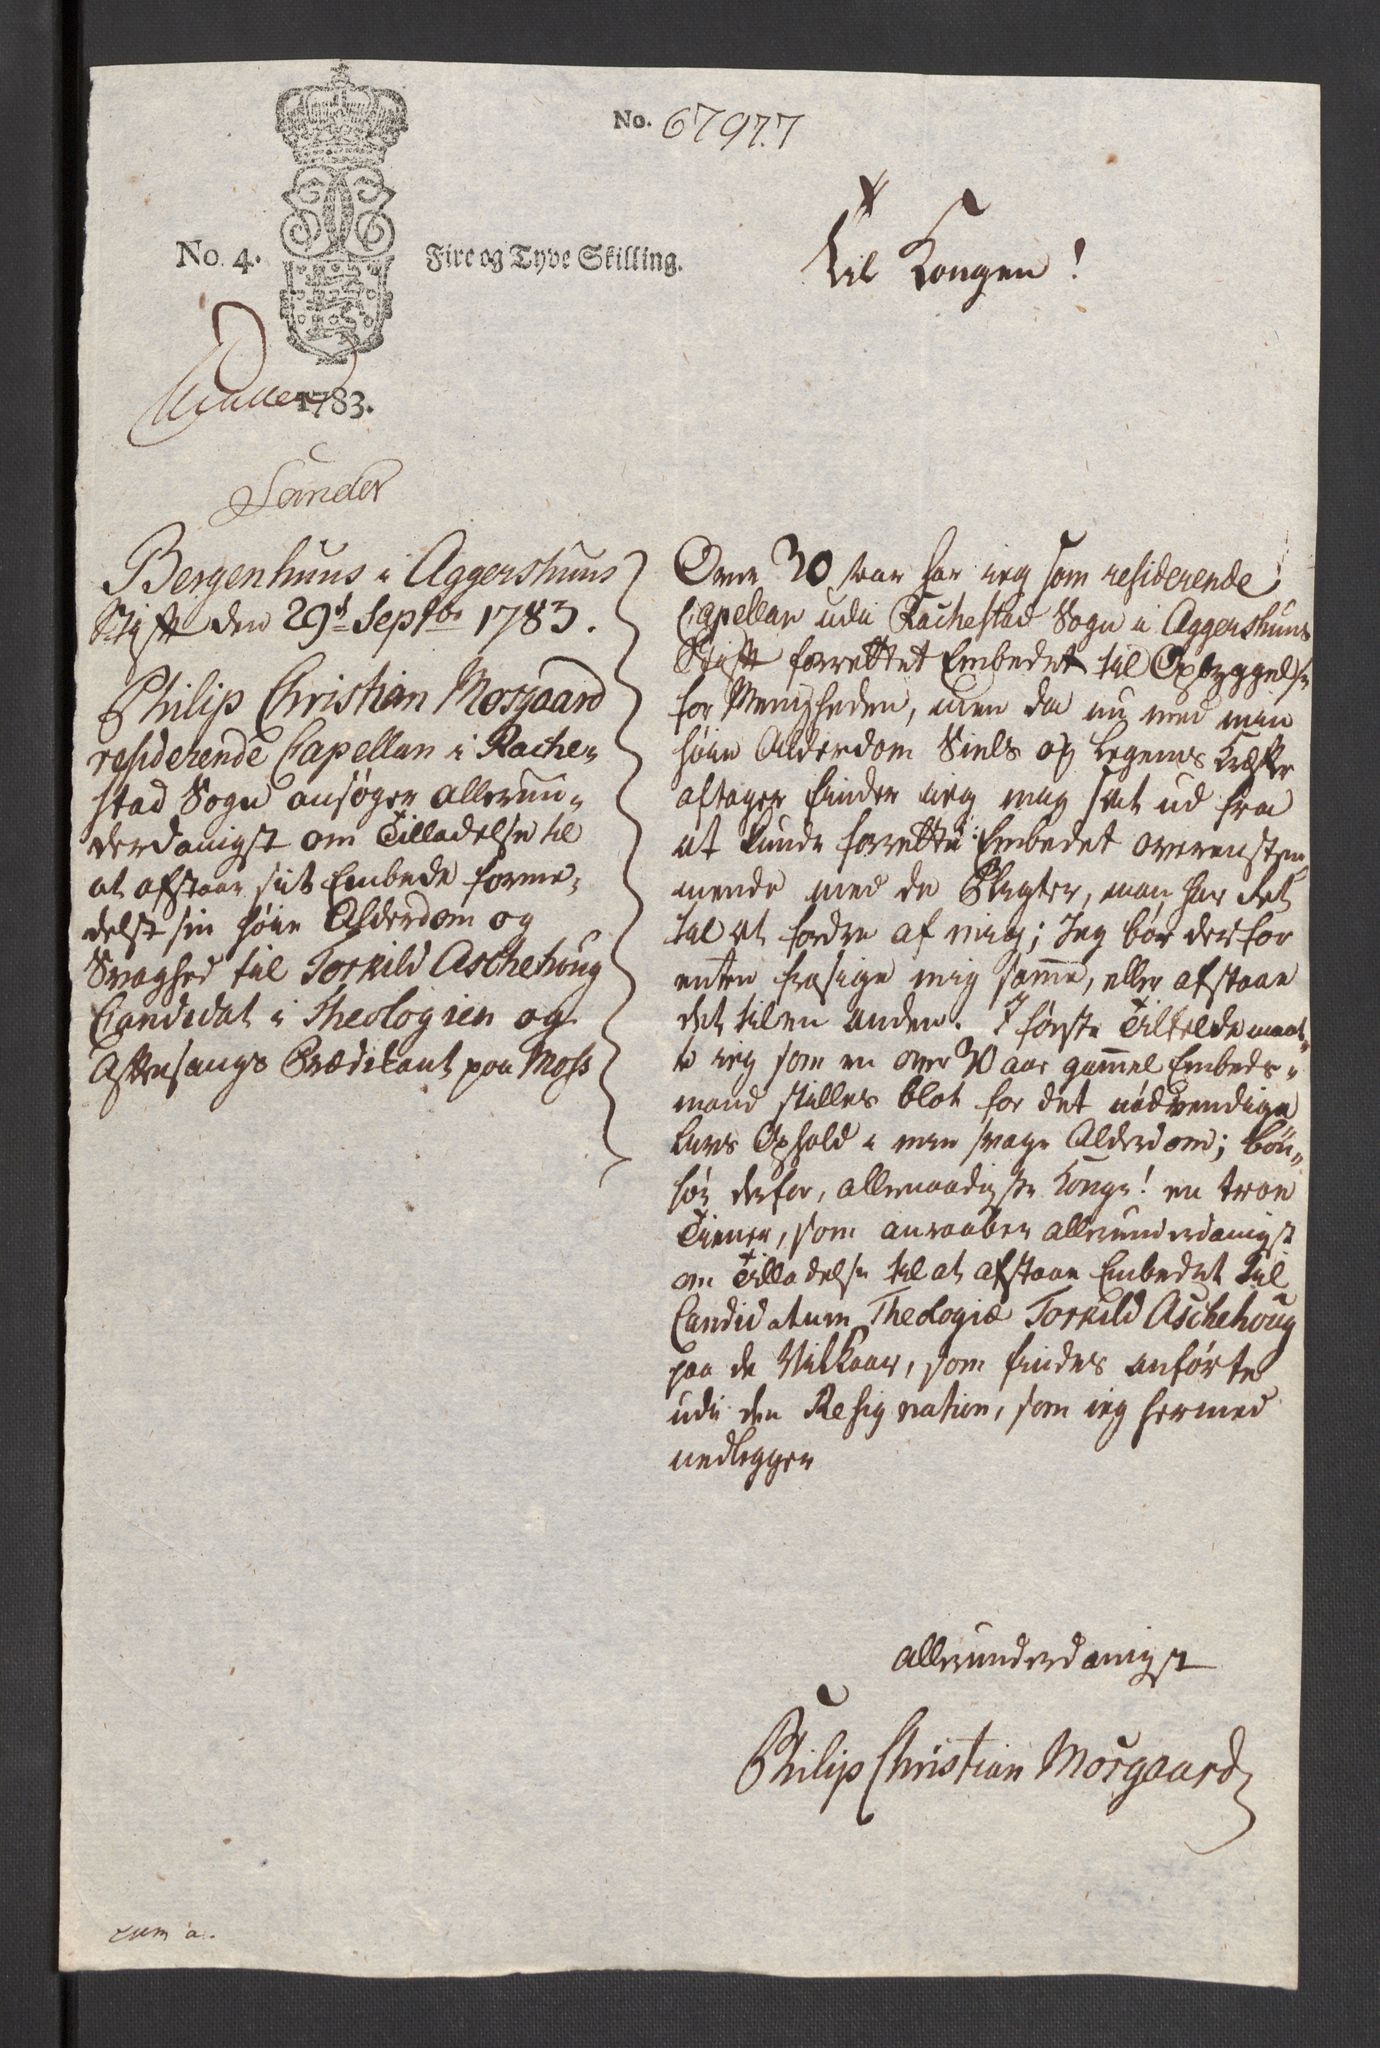 No. 67977
No. 4.
Fire og Tyve Skilling.
Til Kongen!
1783.
Sander
Bergenhuus i Aggershuus
Stift den 29d Septbr 1783.
Philip Christian Morgaard
residerende Capellan i Rache-
stad Sogn ansøger allerun-
derdanigst om Tilladelse til
at afstaae sit Embede forme-
delst sin høie Alderdom og
Svaghed til Torkild Aschehoug
Candidat i Theologien og
Aftensangs Prædikant paa Moss
Over 30 Aar har ieg som residerende
Capellan udi Rachestad Sogn i Aggershuus
Stift forrettet Embedet til Opbyggelse
for Menigheden, men da nu med min
høie Alderdom Siels og Legems Kræfter
aftager finder ieg mig sat ud fra
at kunde forrette Embedet overensstem-
mende med de Pligter, man har Ret
til at fordre af mig; Jeg bør derfor
enten frasige mig samme, eller afstaae
det til en anden. I første Tilfelde maat-
te ieg som en over 70 Aar gammel Embeds-
mand stilles blot for det nødvendige
Livs Ophold i min svage Alderdom; bøn-
hør derfor, allernaadigste Konge! en troe
Tiener, som anraaber allerunderdanigst
om Tilladelse til at afstaae Embedet til
Candidatum Theologiæ Torkild Aschehoug
paa de Vilkaar, som findes anførte
udi den Resignation, som ieg hermed
nedlegger
allerunderdanigst
Philip Christian Morgaard